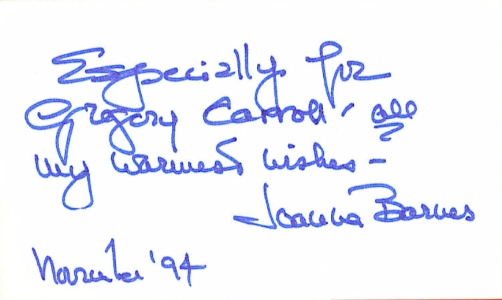 Especially for
Gregory Carroll, all
my warmest wishes –
Joanna Barnes
November '94